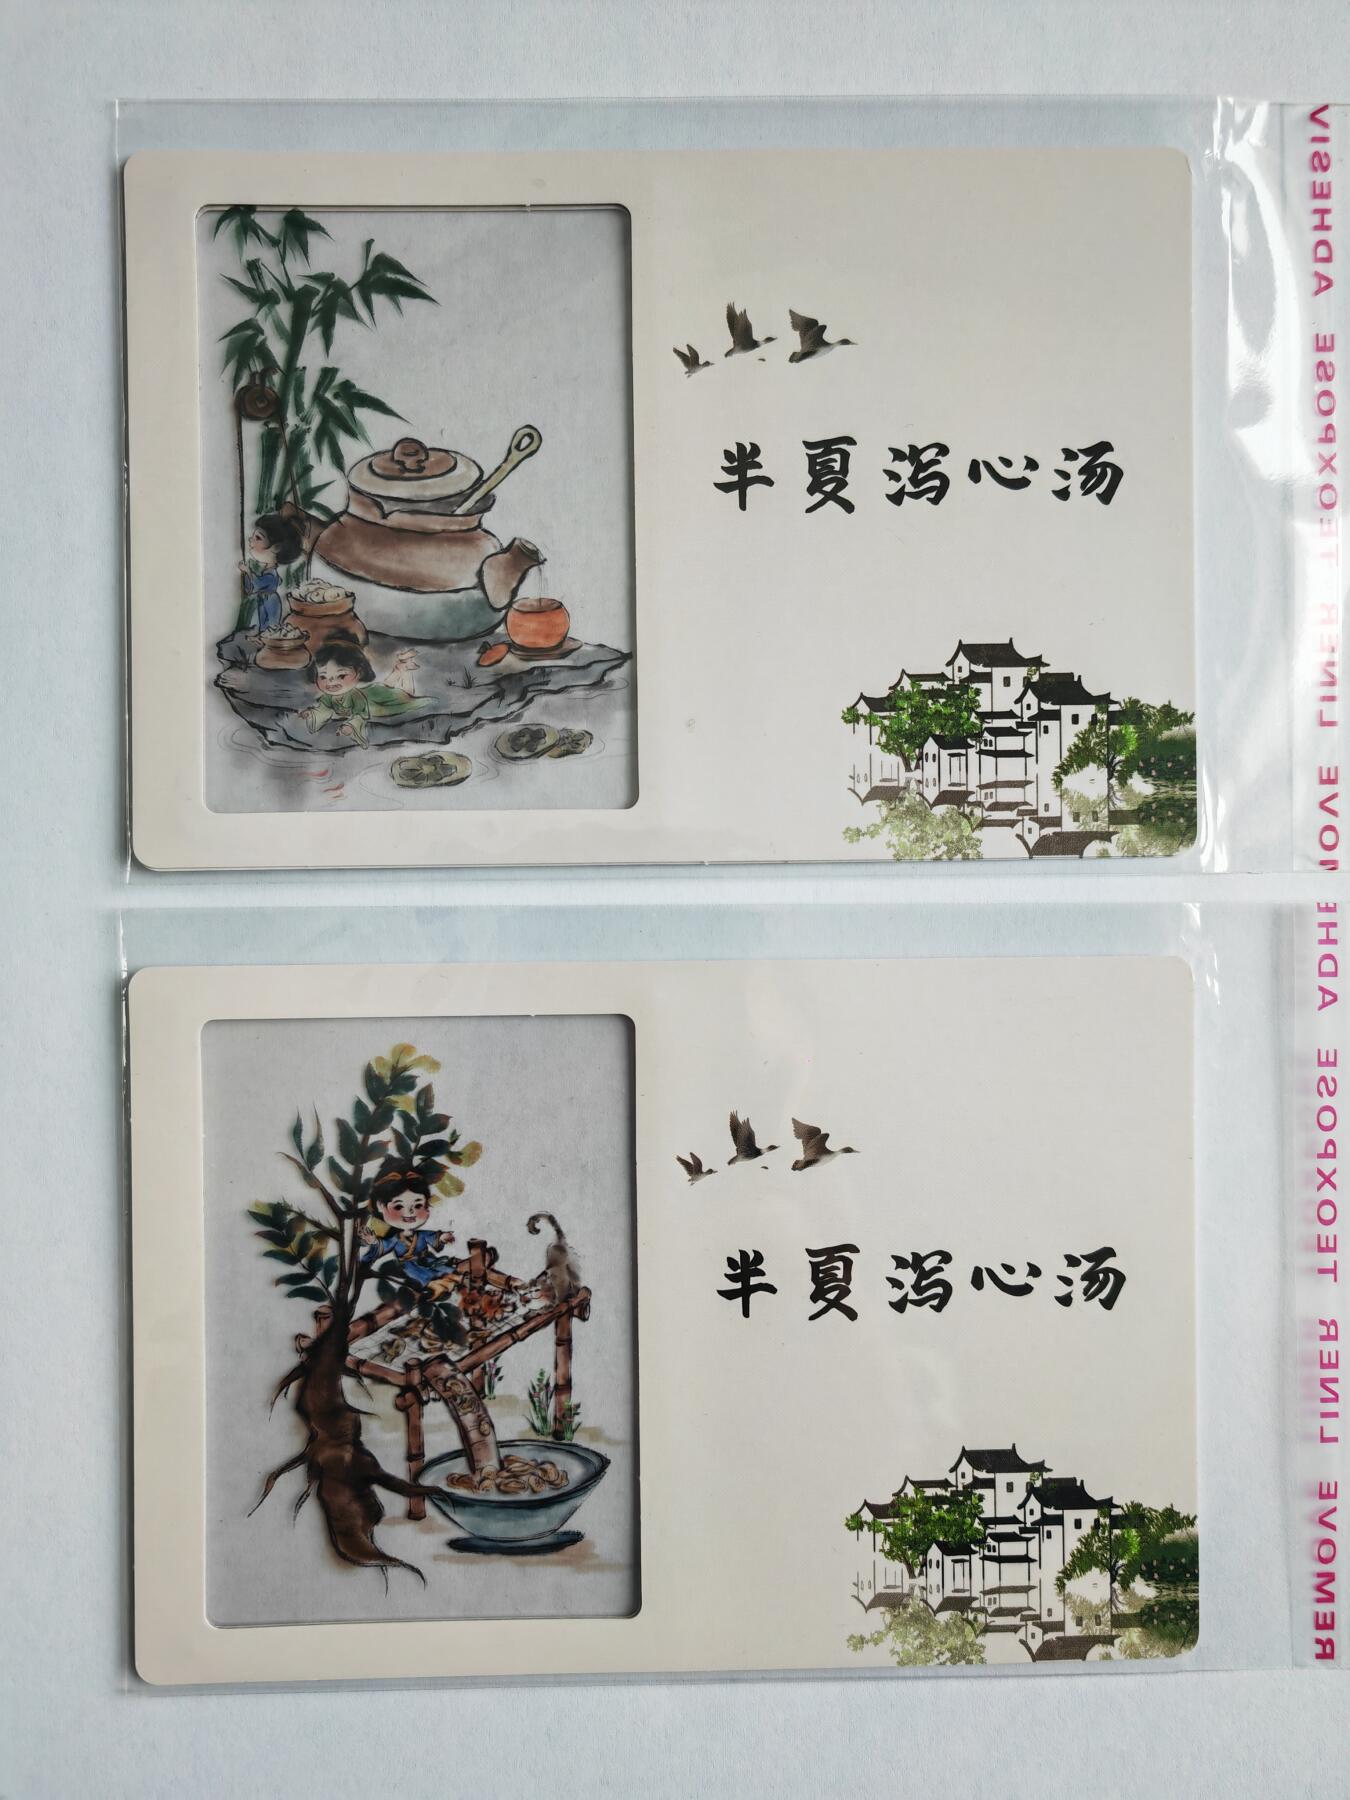 半夏泻心汤
半夏泻心汤
ADHESIV
TEOXPOSE
LINER
MOVE
ADHE
TEOXPOSE
LINER
REMOVE